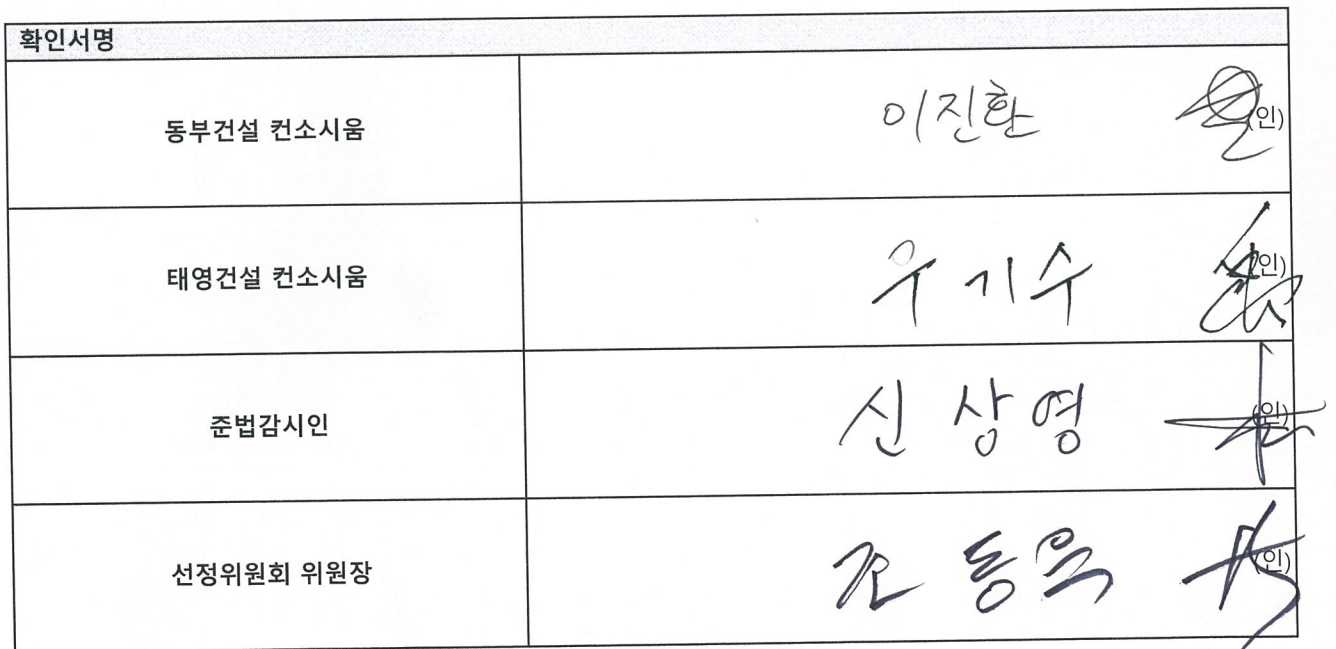 확인서명
동부건설 컨소시움 이진환 (인)
태영건설 컨소시움 우기수 (인)
준법감시인 신상영 (인)
선정위원회 위원장 조동욱 (인)